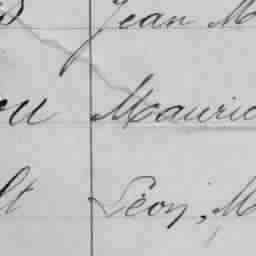 Jean M
ou Mauric
lt Léon, M